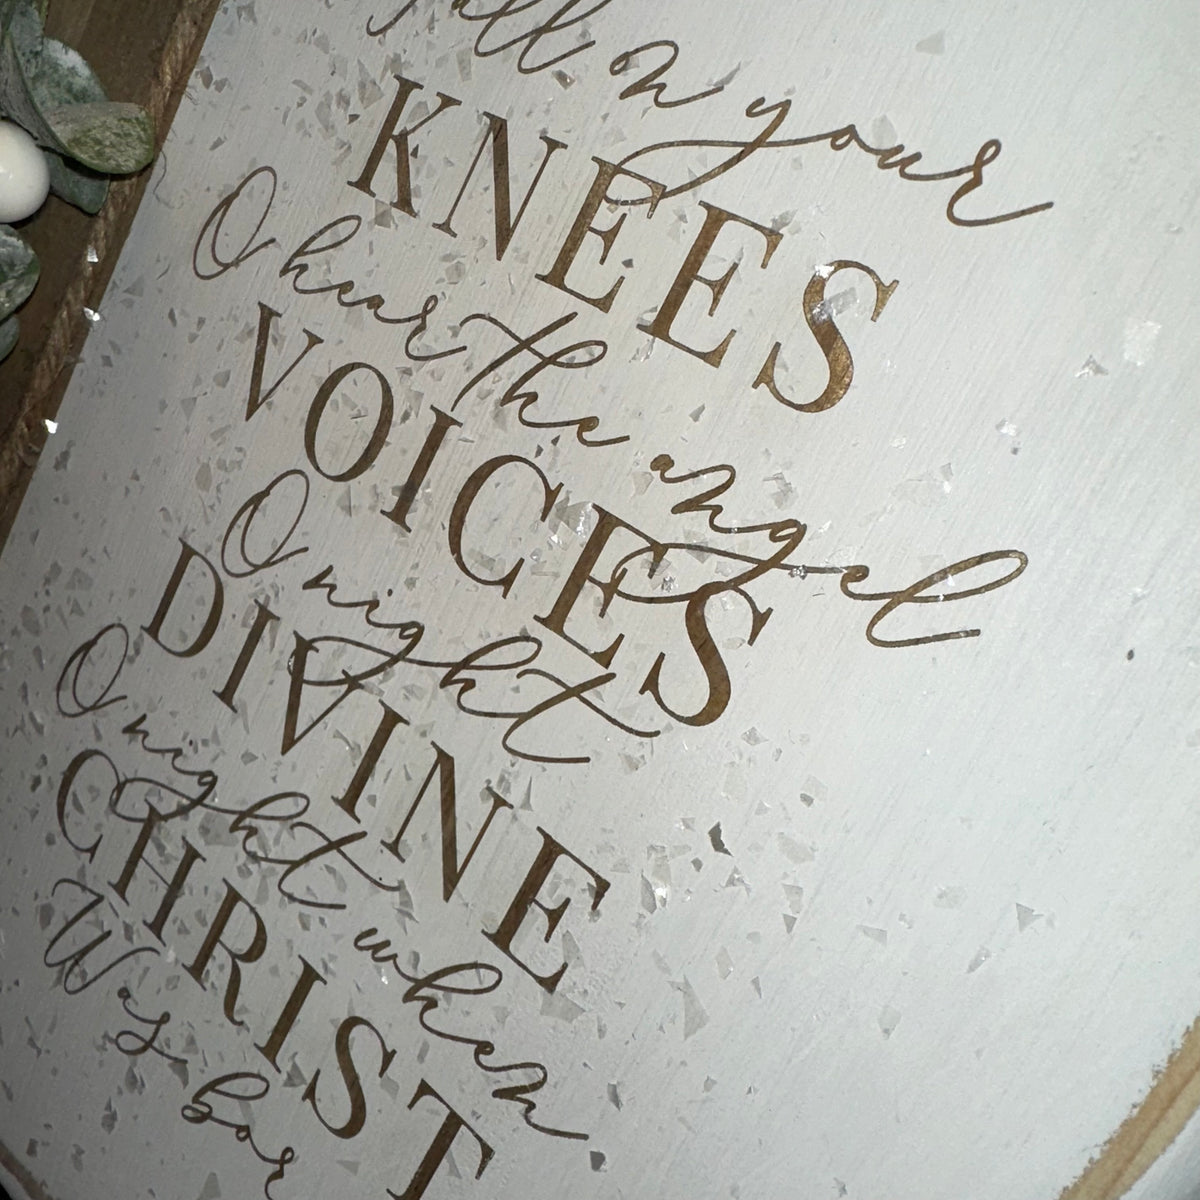 Fall on your
KNEES
O hear the angel
VOICES
O night
DIVINE
O night when
CHRIST
Was bor